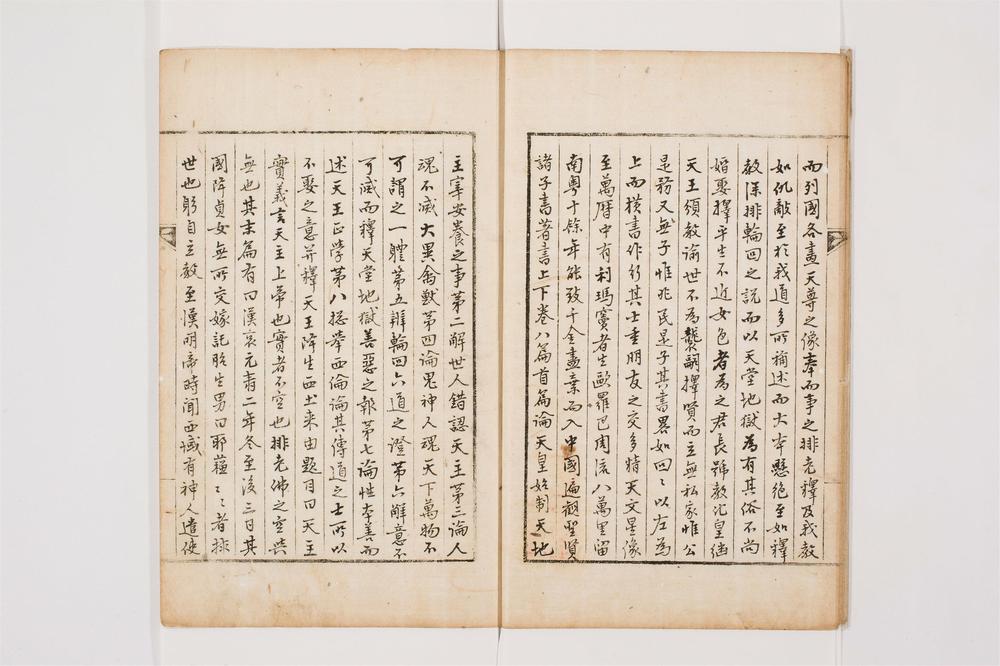 而列國各畫天尊之像奉而事之排老釋及我教
如仇敵至於我道多所稱述而大本懸絶至如釋
教深排輪回之說而以天堂地獄為有其俗不尚
婚娶擇平生不近女色者為之君長號教化皇繼
天主頒教諭世不為襲嗣擇賢而立無私家惟公
是務又無子惟兆民是子其書畧如回〻以左為
上而橫書作行其士重朋友之交多精天文星像
至萬曆中有利瑪竇者生歐羅巴周流八萬里留
南粵十餘年能致千金盡棄而入中國遍觀聖賢
諸子書著書上下卷八篇首篇論天皇始制天地
主宰安養之事第二解世人錯認天主第三論人
魂不滅大異禽獸第四論鬼神人魂天下萬物不
可謂之一體第五辨輪回六道之證第六解意不
可滅而釋天堂地獄善惡之報第七論性本善而
述天主正學第八摠舉西俗論其傳道之士所以
不娶之意幷釋天主降生西土來由題目曰天主
實義言天主上帝也實者不空也排老佛之空與
無也其末篇有曰漢哀元壽二年冬至後三日其
國降貞女無所交嫁託胎生男曰耶蘇〻〻者捄
世也躬自立教至漢明帝時聞西域有神人遣使